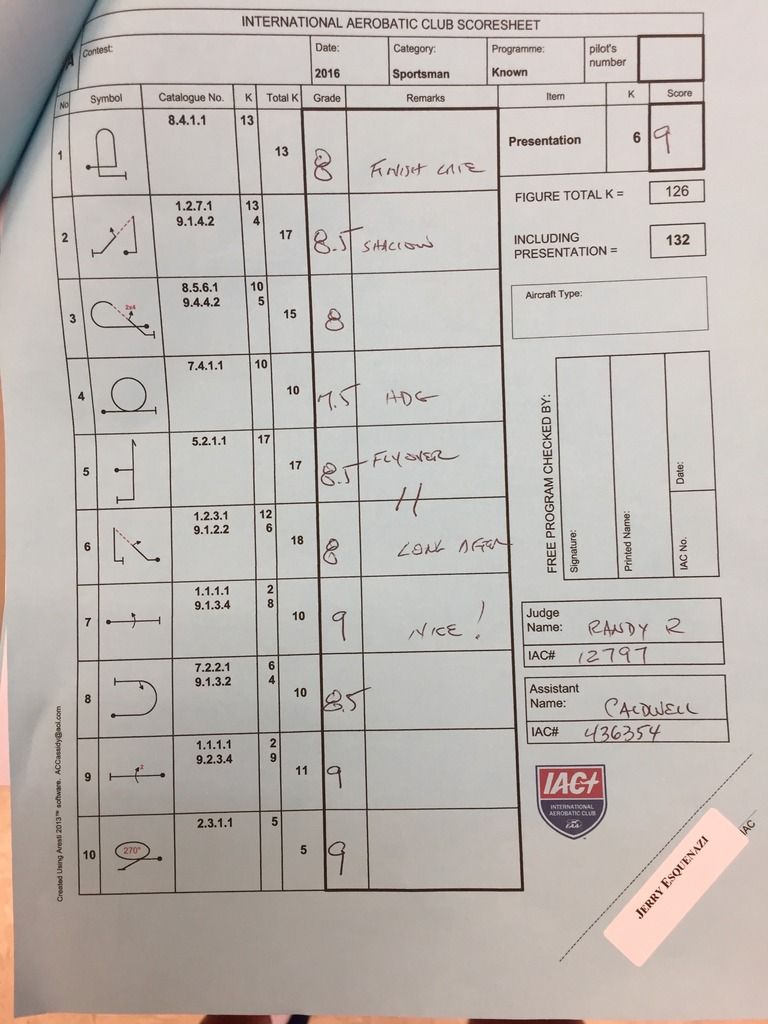 INTERNATIONAL AEROBATIC CLUB SCORESHEET
A Contest: Date: 2016 Category: Sportsman Programme: Known pilot's number
No Symbol Catalogue No. K Total K Grade Remarks Item K Score
1 8.4.1.1 13 13 8 FINISH LATE
2 1.2.7.1 13 17 8.5 SHALLOW
9.1.4.2 4
3 2x4 8.5.6.1 10 15 8
9.4.4.2 5
4 7.4.1.1 10 10 7.5 HDG
5 5.2.1.1 17 17 8.5 FLYOVER
6 1.2.3.1 12 18 8 LONG AFTER
9.1.2.2 6
7 1.1.1.1 2 10 9 NICE!
9.1.3.4 8
8 7.2.2.1 6 10 8.5
9.1.3.2 4
9 2 1.1.1.1 2 11 9
9.2.3.4 9
10 270° 2.3.1.1 5 5 9
Presentation 6 9
FIGURE TOTAL K = 126
INCLUDING
PRESENTATION = 132
Aircraft Type:
FREE PROGRAM CHECKED BY:
Signature:
Printed Name:
IAC No. Date:
Judge
Name: RANDY R
IAC# 12797
Assistant
Name: CALDWELL
IAC# 436354
IAC
INTERNATIONAL
AEROBATIC CLUB
JERRY ESQUENAZI
IAC
Created Using Aresti 2013™ software. ACCassidy@aol.com